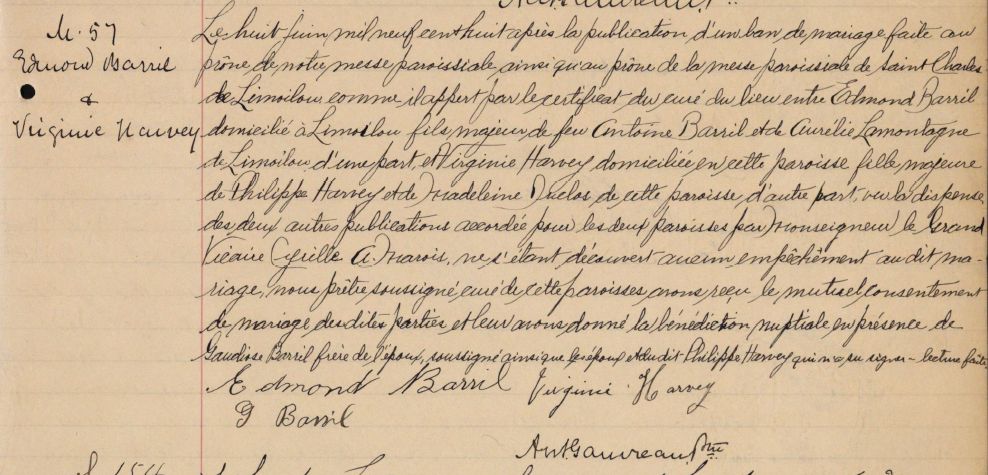 M. 57
Edmond Barril
&
Virginie Harvey
Le huit juin mil neuf cent huit après la publication d'un ban de mariage faite au
prône de notre messe paroissiale, ainsi qu'au prône de la messe paroissiale de Saint Charles
de Limoilou comme il appert par le certificat du curé du lieu entre Edmond Barril
domicilié à Limoilou fils, majeur de feu Antoine Barril et de Aurélie Lamontagne
de Limoilou d'une part, et Virginie Harvey domiciliée en cette paroisse fille, majeure
de Philippe Harvey et de Madeleine Duclos de cette paroisse, d'autre part, vu la dispense
des deux autres publications accordée pour les deux paroisses par Monseigneur le Grand
Vicaire Cyrille A. Marois, ne s'étant découvert aucun empêchement au dit ma-
riage, nous prêtre soussigné curé de cette paroisses avons reçu le mutuel consentement
de mariage des dites parties et leur avons donné la bénédiction nuptiale en présence de
Gaudiose Barril frère de l'époux, soussigné ainsi que les époux et du dit Philippe Harvey qui n'a su signer - lecture faite.
Edmond Barril Virginie Harvey
G Barril
Ant Gauvreau Ptre